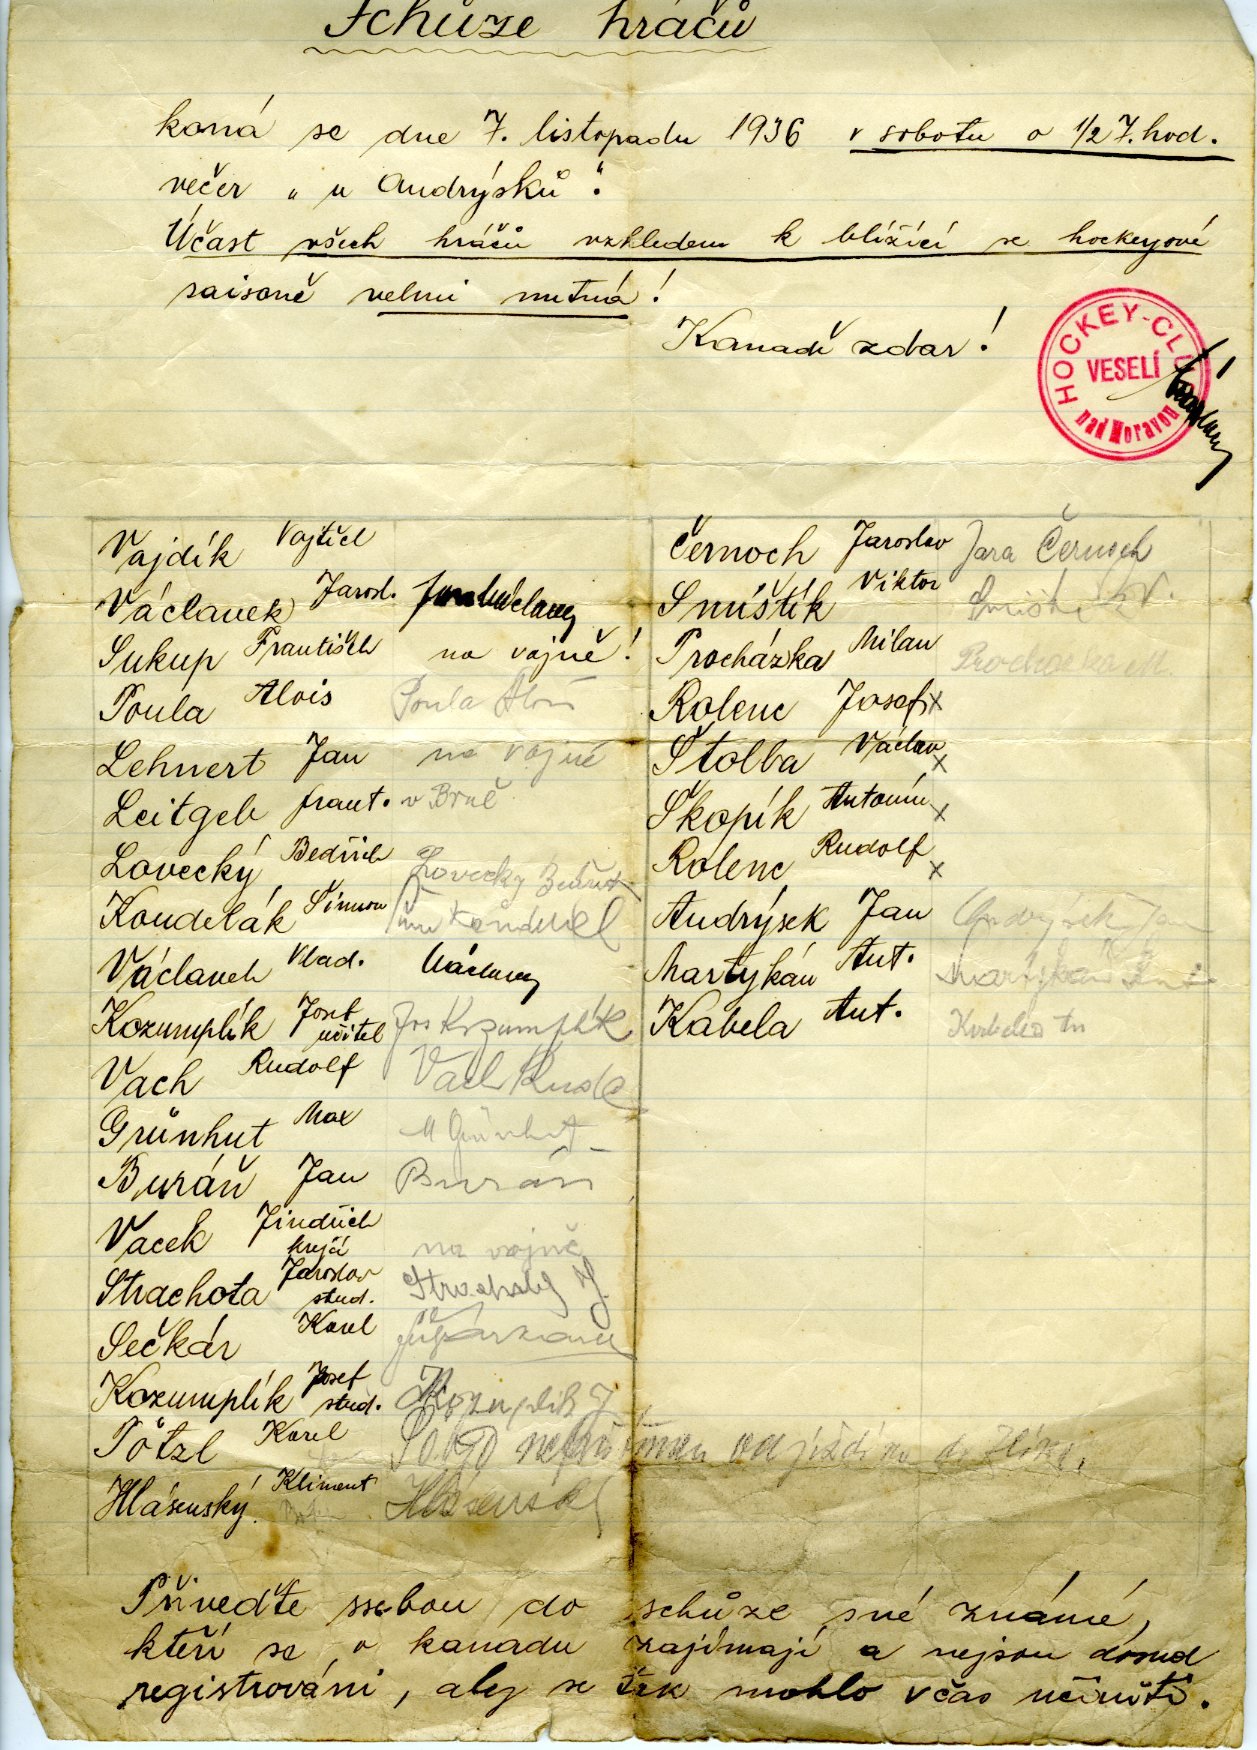 Schůze hráčů
koná se dne 7. listopadu 1936 v sobotu o 1/2 7. hod.
večer „u Andrýsků“.
Účast všech hráčů vzhledem k blížící se hockeyové
saisoně velmi nutná!
Kanadě zdar!
HOCKEY-CLU
VESELÍ
nad Moravou
Vajdík Vojtěch
Václavek Jarosl.
Sukup František na vojně!
Poula Alois Poula Alois
Lehnert Jan na vojně
Leitgeb frant. v Brně
Lovecký Bedřich Lovecký
Koudelák Šimon
Václavek Vlad. Václavek
Kozumplík Josef učitel Jos Kozumplík
Vach Rudolf Vach Ruda
Grünhut Max M Grünhut
Buráň Jan Buráň
Vacek Jindřich krejčí na vojně
Strachota Jaroslav stud. Strachota J.
Sečkár Karel
Kozumplík Josef stud. Kozumplík J.
Pötzl Karel
Hlásenský Kliment Hlásenský
Černoch Jaroslav Jara Černoch
Smištík Viktor Smištík V.
Procházka Milan Procházka M.
Rolenc Josef x
Štolba Václav x
Škopík Antonín x
Rolenc Rudolf x
Andrýsek Jan Andrýsek Jan
Martykán Ant. Martykán Ant.
Kabela Ant. Kabela An
Přiveďte ssebou do schůze své známé,
kteří se o kanadu zajímají a nejsou dosud
registrováni, aby se tak mohlo včas učiniti.